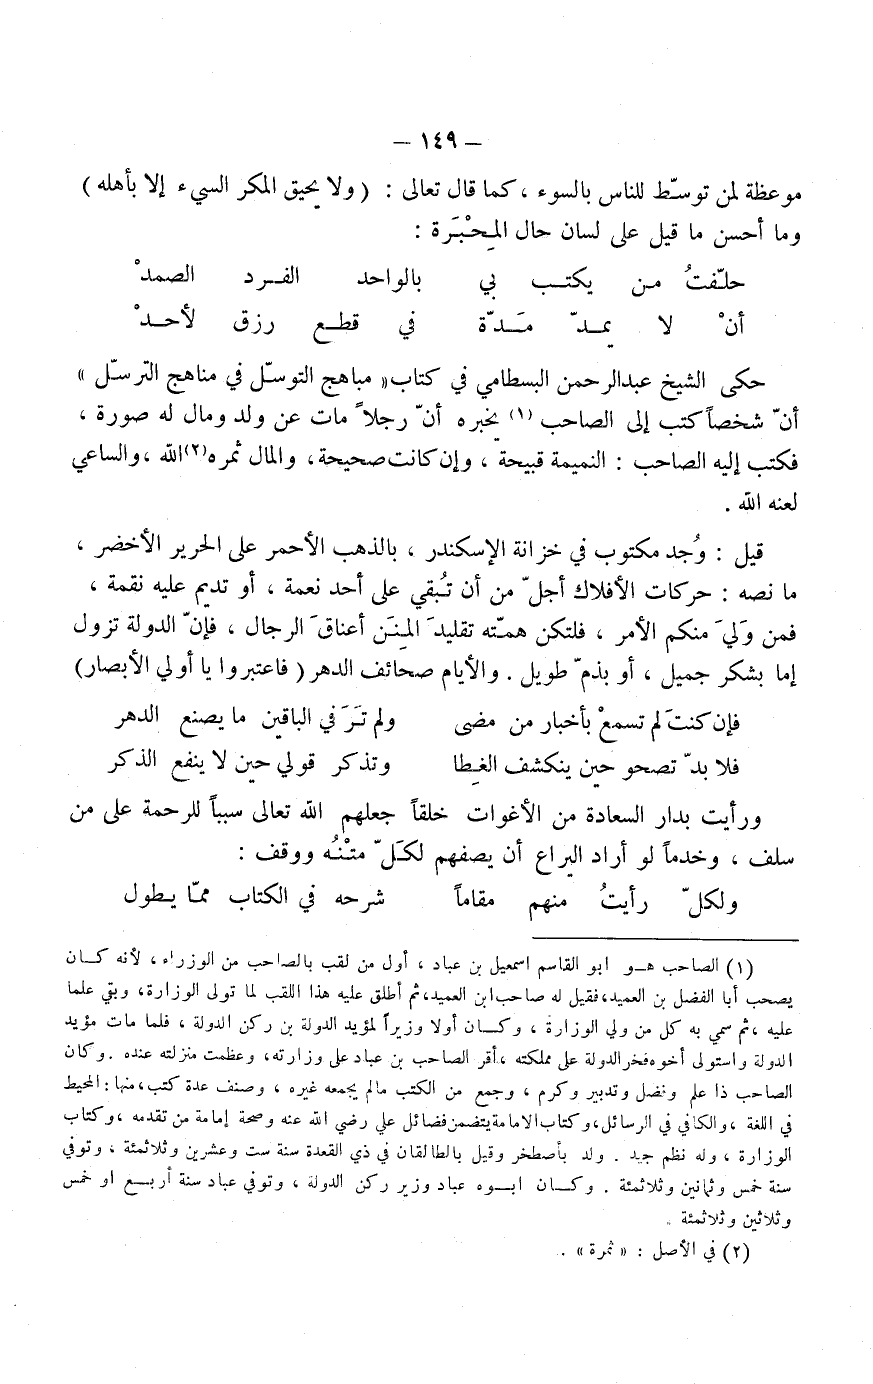 — ١٤٩ —
موعظة لمن توسّط للناس بالسوء ، كما قال تعالى : ( ولا يحيق المكر السيء إلا بأهله )
وما أحسن ما قيل على لسان حال المِحْبَرة :
حلّفتُ من يكتب بي بالواحد الفرد الصمدْ
أنْ لا يمدّ مَدّة في قطع رزق لأحدْ
حكى الشيخ عبدالرحمن البسطامي في كتاب « مباهج التوسّل في مناهج الترسّل »
أنّ شخصاً كتب إلى الصاحب (١) يخبره أنّ رجلاً مات عن ولد ومال له صورة ،
فكتب إليه الصاحب : النميمة قبيحة ، وإن كانت صحيحة، والمال ثمره(٢) الله ، والساعي
لعنه الله .
قيل : وُجد مكتوب في خزانة الإسكندر ، بالذهب الأحمر على الحرير الأخضر ،
ما نصه : حركات الأفلاك أجلّ من أن تُبقي على أحد نعمة ، أو تديم عليه نقمة ،
فمن وَليَ منكم الأمر ، فلتكن همّته تقليدَ المِنَن أعناقَ الرجال ، فإنّ الدولة تزول
إما بشكر جميل ، أو بذمّ طويل . والأيام صحائف الدهر ( فاعتبروا يا أولي الأبصار)
فإن كنتَ لم تسمعْ بأخبار من مضى ولم تَرَ في الباقين ما يصنع الدهر
فلا بدّ تصحو حين ينكشف الغِطا وتذكر قولي حين لا ينفع الذكر
ورأيت بدار السعادة من الأغوات خلقاً جعلهم الله تعالى سبباً للرحمة على من
سلف ، وخدماً لو أراد اليراع أن يصفهم لكَلّ متْنُه ووقف :
ولكلّ رأيتُ منهم مقاماً شرحه في الكتاب ممّا يطول
(١) الصاحب هو ابو القاسم اسمعيل بن عباد ، أول من لقب بالصاحب من الوزراء ، لأنه كان
يصحب أبا الفضل بن العميد، فقيل له صاحب ابن العميد، ثم أطلق عليه هذا اللقب لما تولى الوزارة، وبقي علما
عليه ، ثم سمي به كل من ولي الوزارة ، وكان أولا وزيراً لمؤيد الدولة بن ركن الدولة ، فلما مات مؤيد
الدولة واستولى أخوه فخر الدولة على مملكته ، أقر الصاحب بن عباد على وزارته، وعظمت منزلته عنده . وكان
الصاحب ذا علم وفضل وتدبير وكرم ، وجمع من الكتب مالم يجمعه غيره ، وصنف عدة كتب، منها : المحيط
في اللغة ، والكافي في الرسائل، وكتاب الامامة يتضمن فضائل علي رضي الله عنه وصحة إمامة من تقدمه ، وكتاب
الوزارة ، وله نظم جيد . ولد بأصطخر وقيل بالطالقان في ذي القعدة سنة ست وعشرين وثلاثمئة ، وتوفي
سنة خمس وثمانين وثلاثمئة . وكان ابوه عباد وزير ركن الدولة ، وتوفي عباد سنة أربع او خمس
وثلاثين وثلاثمئة .
(٢) في الأصل : « ثمرة » .